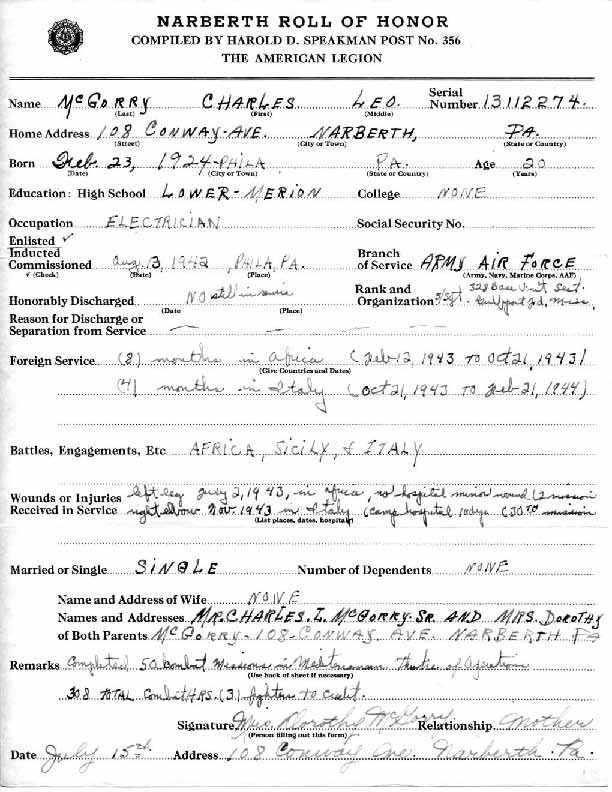 NARBERTH ROLL OF HONOR
COMPILED BY HAROLD D. SPEAKMAN POST No. 356
THE AMERICAN LEGION
Name McGORRY CHARLES LEO. Serial Number 13112274.
(Last) (First) (Middle)
Home Address 108 CONWAY-AVE. NARBERTH, PA.
(Street) (City or Town) (State or Country)
Born Feb. 23, 1924-PHILA PA. Age 20
(Date) (City or Town) (State or Country) (Years)
Education: High School LOWER-MERION College NONE
Occupation ELECTRICIAN Social Security No.
Enlisted ✓
Inducted
Commissioned Aug. 13, 1942, PHILA, PA. Branch of Service ARMY AIR FORCE
√ (Check) (Date) (Place) (Army, Navy, Marine Corps, AAF)
Honorably Discharged NO still in service Rank and Organization S/Sgt. 328 Base Unit Sect. Gulfport Fld, Miss.
(Date (Place)
Reason for Discharge or
Separation from Service — — —
Foreign Service (8) months in Africa (Feb 12, 1943 TO Oct 21, 1943)
(Give Countries and Dates)
(4) months in Italy (Oct 21, 1943 TO Feb-21, 1944)
Battles, Engagements, Etc AFRICA, SICILY, & ITALY
Wounds or Injuries left leg July 2, 1943, in Africa, no hospital minor wound (2 mission
Received in Service right elbow Nov. 1943 in Italy (camp hospital (30TH mission
(List places, dates, hospitals)
Married or Single SINGLE Number of Dependents NONE
Name and Address of Wife NONE
Names and Addresses MR. CHARLES. L. McGORRY-SR. AND MRS. DOROTHY
of Both Parents McGORRY-108-CONWAY AVE. NARBERTH PA
Remarks Completed 50 Combat Missions in Mediteranean Theatre of Operations
(Use back of sheet if necessary)
308 TOTAL Combat HRS. (3) fighters to credit.
Signature Mrs. Dorothy McGorry Relationship Mother
(Person filling out this form)
Date July 15th Address 108 Conway Ave. Narberth. Pa.